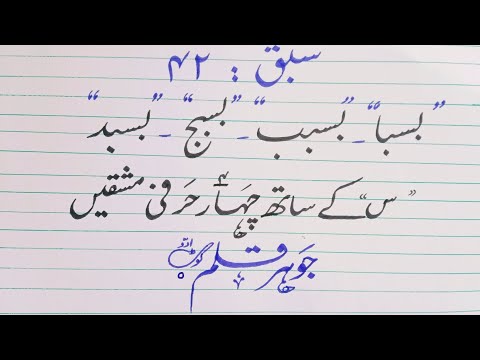 سبق : ۴۲
"بسبا" - "بسبب" - "بسبج" - "بسبد"
"س" کے ساتھ چہار حرفی مشقیں
جوہر قلم